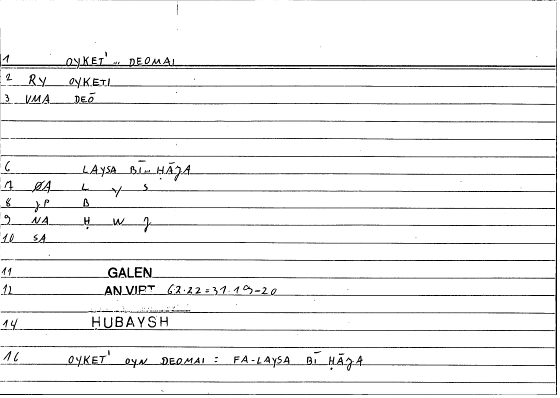 1 OYKET' ... DEOMAI
2 RY OYKETI
3 VMA DEŌ
6 LAYSA BĪ... ḤĀǧA
7 ØA L Y S
8 ǧP B
9 NA Ḥ W ǧ
10 SA
11 GALEN
12 AN VIRT 62.22=31.19-20
14 HUBAYSH
16 OYKET' OYN DEOMAI = FA-LAYSA BĪ ḤĀǧA